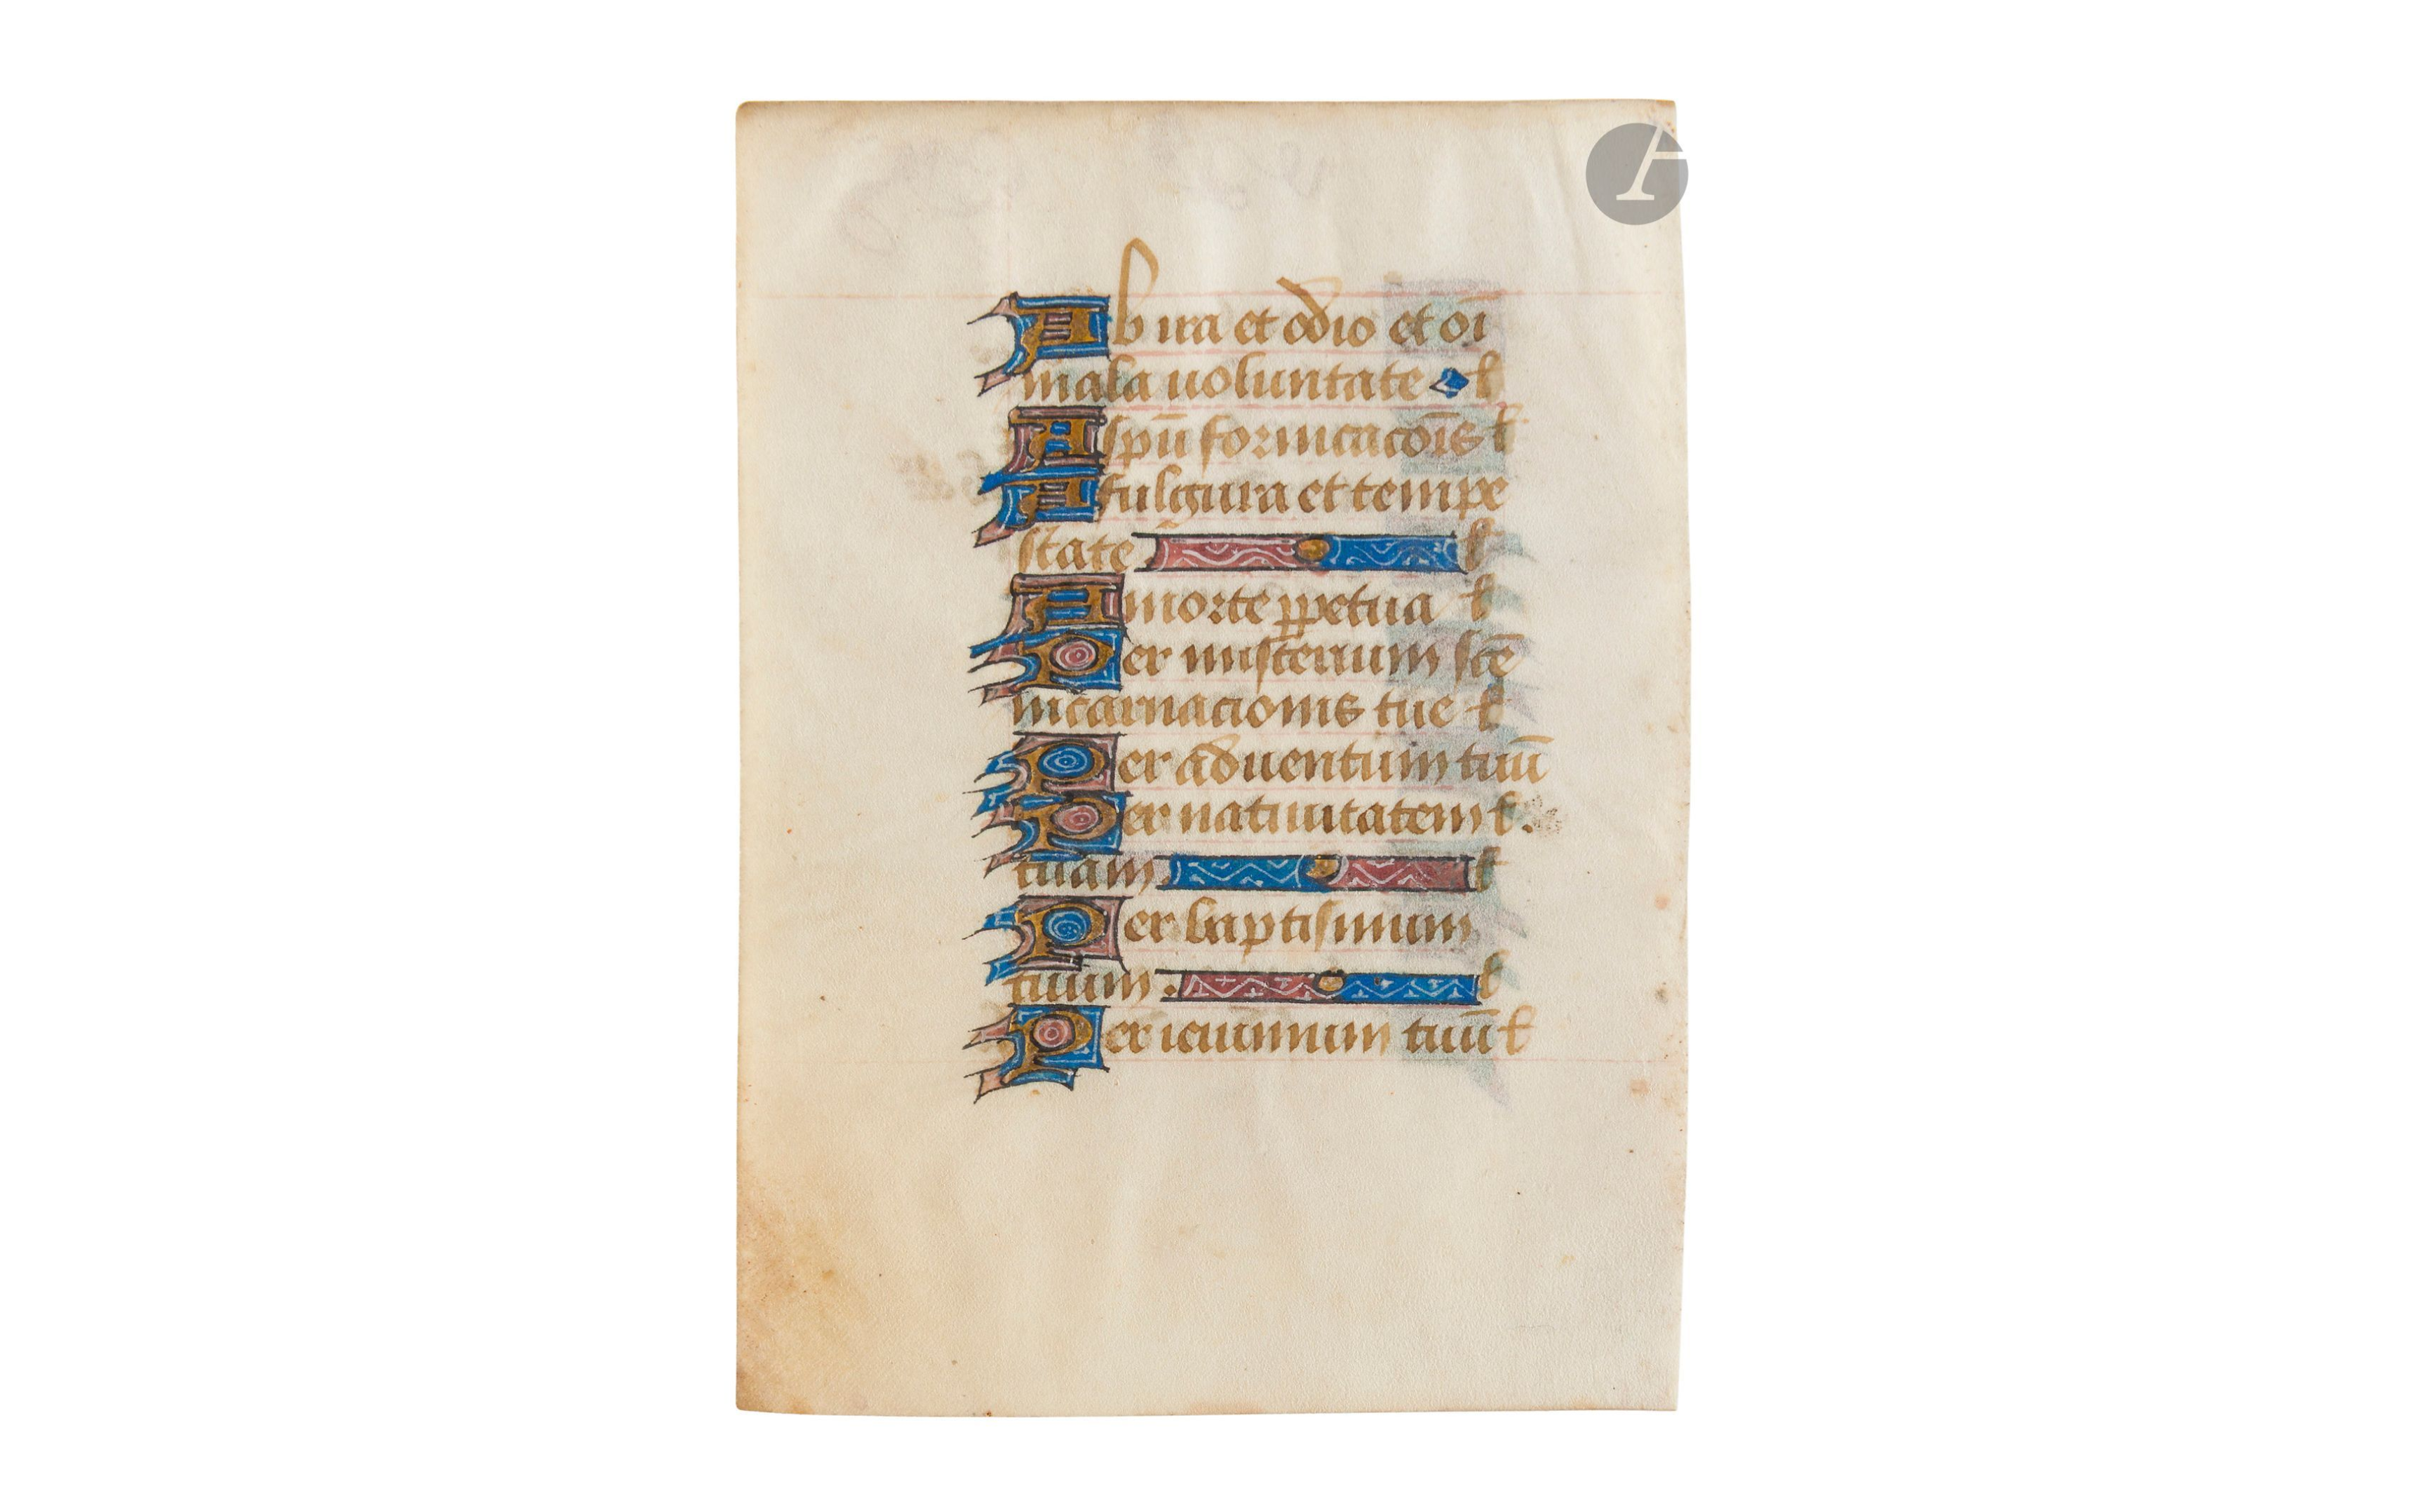 Ab ira et odio et oī
mala uoluntate ł
A spū fornicacōis ł
A fulgura et tempe
state ł
A morte ꝑpetua ł
Per misterium scē
incarnacionis tue ł
Per aduentum tuū
Per natiuitatem ł.
tuam ł
Per baptismum
tuum. ł
Per ieiunium tuū ł
A